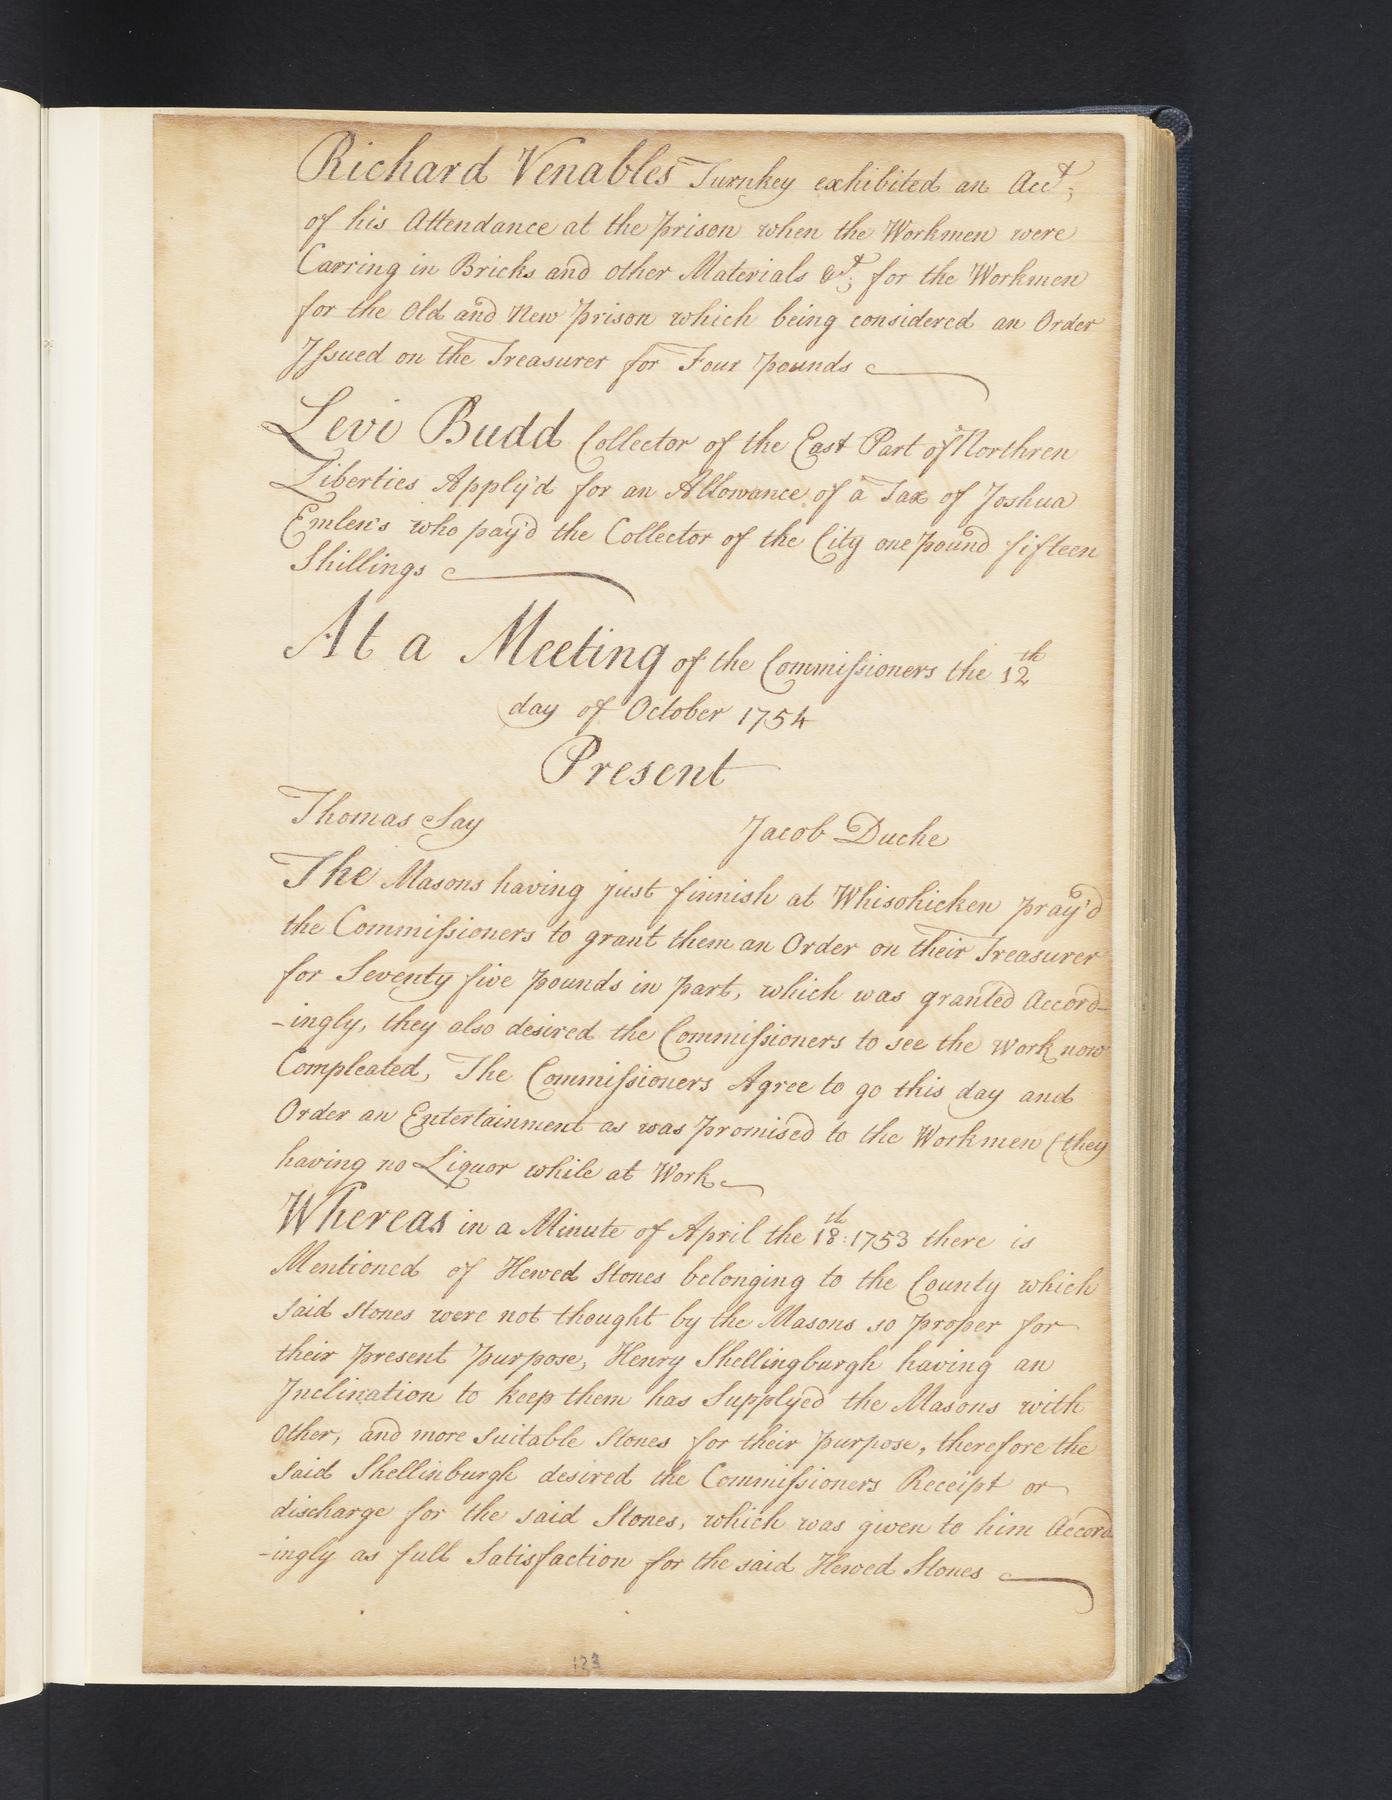 Richard Venables Turnkey exhibited an Acct;
of his Attendance at the prison when the Workmen were
Carring in Bricks and other Materials &ct; for the Workmen
for the Old and New prison which being considered an Order
Issued on the Treasurer for Four pounds
Levi Budd Collector of the East Part of Northren
Liberties Apply'd for an Allowance of a Tax of Joshua
Emlen's who pay'd the Collector of the City one pound fifteen
Shillings
At a Meeting of the Commissioners the 12th
day of October 1754
Present
Thomas Say Jacob Duche
The Masons having just finnish at Whisohicken pray'd
the Commissioners to grant them an Order on their Treasurer
for Seventy five pounds in part, which was granted Accord-
-ingly, they also desired the Commissioners to see the Work now
Compleated, The Commissioners Agree to go this day and
Order an Entertainment as was Promised to the Workmen (they
having no Liquor while at Work
Whereas in a Minute of April the 18th: 1753 there is
Mentioned of Hewed Stones belonging to the County which
said Stones were not thought by the Masons so proper for
their present purpose, Henry Shellingburgh having an
Inclination to keep them has Supplyed the Masons with
other, and more suitable Stones for their purpose, therefore the
said Shellinburgh desired the Commissioners Receipt or
discharge for the said Stones, which was given to him Accord
-ingly as full Satisfaction for the said Hewed Stones
123